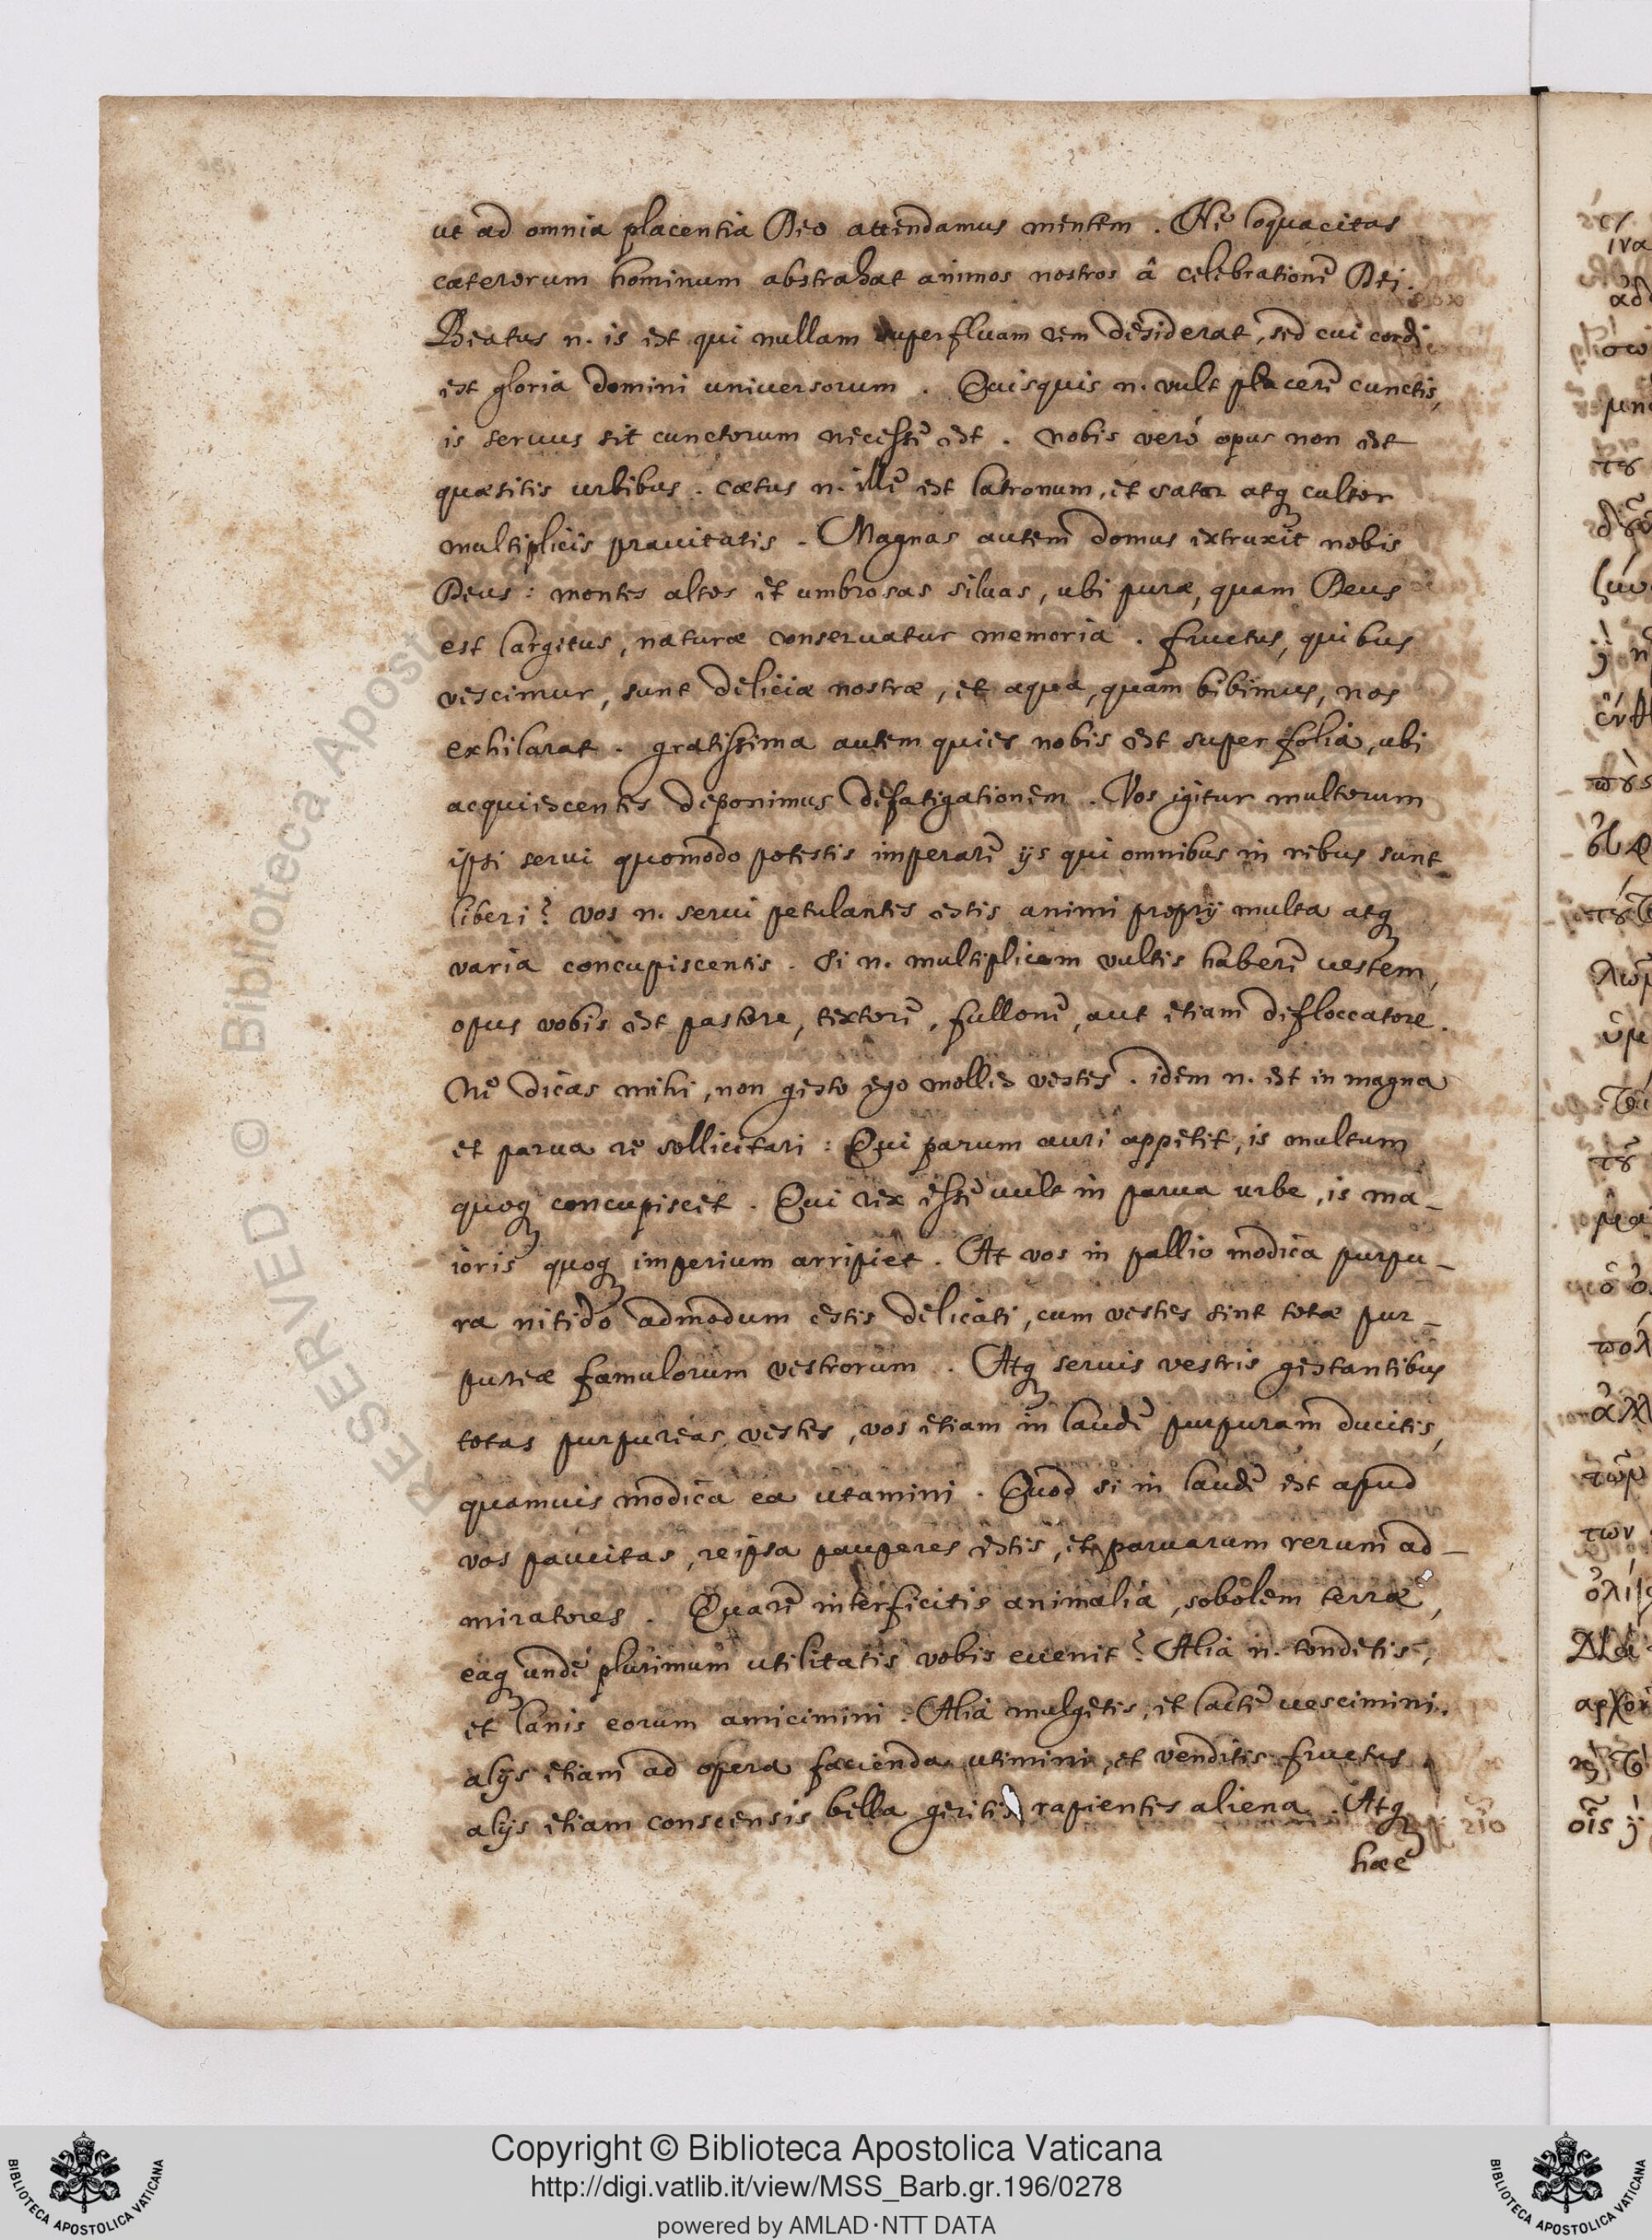 ut ad omnia placentia Deo attendamus mentem . Ne loquacitas
cæterorum hominum abstrahat animos nostros â celebratione Dei .
Beatus n. is est qui nullam superfluam rem desiderat, sed cui cordi
est gloria domini universorum . Quisquis n. vult placere cunctis,
is seruus sit cunctorum necesse est . nobis veró opus non est
quæsitis urbibus . cœtus n. ille est latronum, et sator atq cultor
multiplicis prauitatis . Magnas autem domus extruxit nobis
Deus : montes altos et umbrosas siluas, ubi puræ, quam Deus
est largitus, naturæ conseruatur memoria . fructus, quibus
vescimur, sunt deliciæ nostræ, et aqua, quam bibimus, nos
exhilarat . gratissima autem quies nobis est super folia, ubi
acquiescentes deponimus defatigationem . Vos igitur multorum
ipsi serui quomodo potestis imperare ijs qui omnibus in rebus sunt
liberi ? vos n. serui petulantis estis animi proprij multa atq
varia concupiscentis . Si n. multiplicem vultis habere uestem,
opus vobis est pastore, textore, fullone, aut etiam defloccatore .
Ne dicas mihi, non gesto ego molles vestes . idem n. est in magna
et parua re sollicitari : Qui parum auri appetit, is multum
quoq concupiscet . Qui rex esse uult in parua urbe, is ma-
ioris quoq imperium arripiet . At vos in pallio modica purpu-
ra nitido admodum estis delicati, cum vestes sint totæ pur-
pureæ famulorum vestrorum . Atq seruis vestris gestantibus
totas purpureas vestes, vos etiam in laude purpuram ducitis,
quamuis modica ea utamini . Quod si in laude est apud
vos paucitas, reipsa pauperes estis, et paruarum rerum ad-
miratores . Quare interficitis animalia, sobolem terræ,
eaq unde plurimum utilitatis vobis euenit ? Alia n. tondetis,
et lanis eorum amicimini . Alia mulgetis, et lacte uescimini .
alijs etiam ad opera facienda utimini, et venditis fructus .
alijs etiam conscensis bella geritis rapientes aliena . Atq
hæc
ἵνα
RESERVED © Biblioteca Aposto
Copyright © Biblioteca Apostolica Vaticana
http://digi.vatlib.it/view/MSS_Barb.gr.196/0278
powered by AMLAD·NTT DATA
BIBLIOTECA APOSTOLICA VATICANA
BIBLIOTECA APOSTOLICA VATICANA